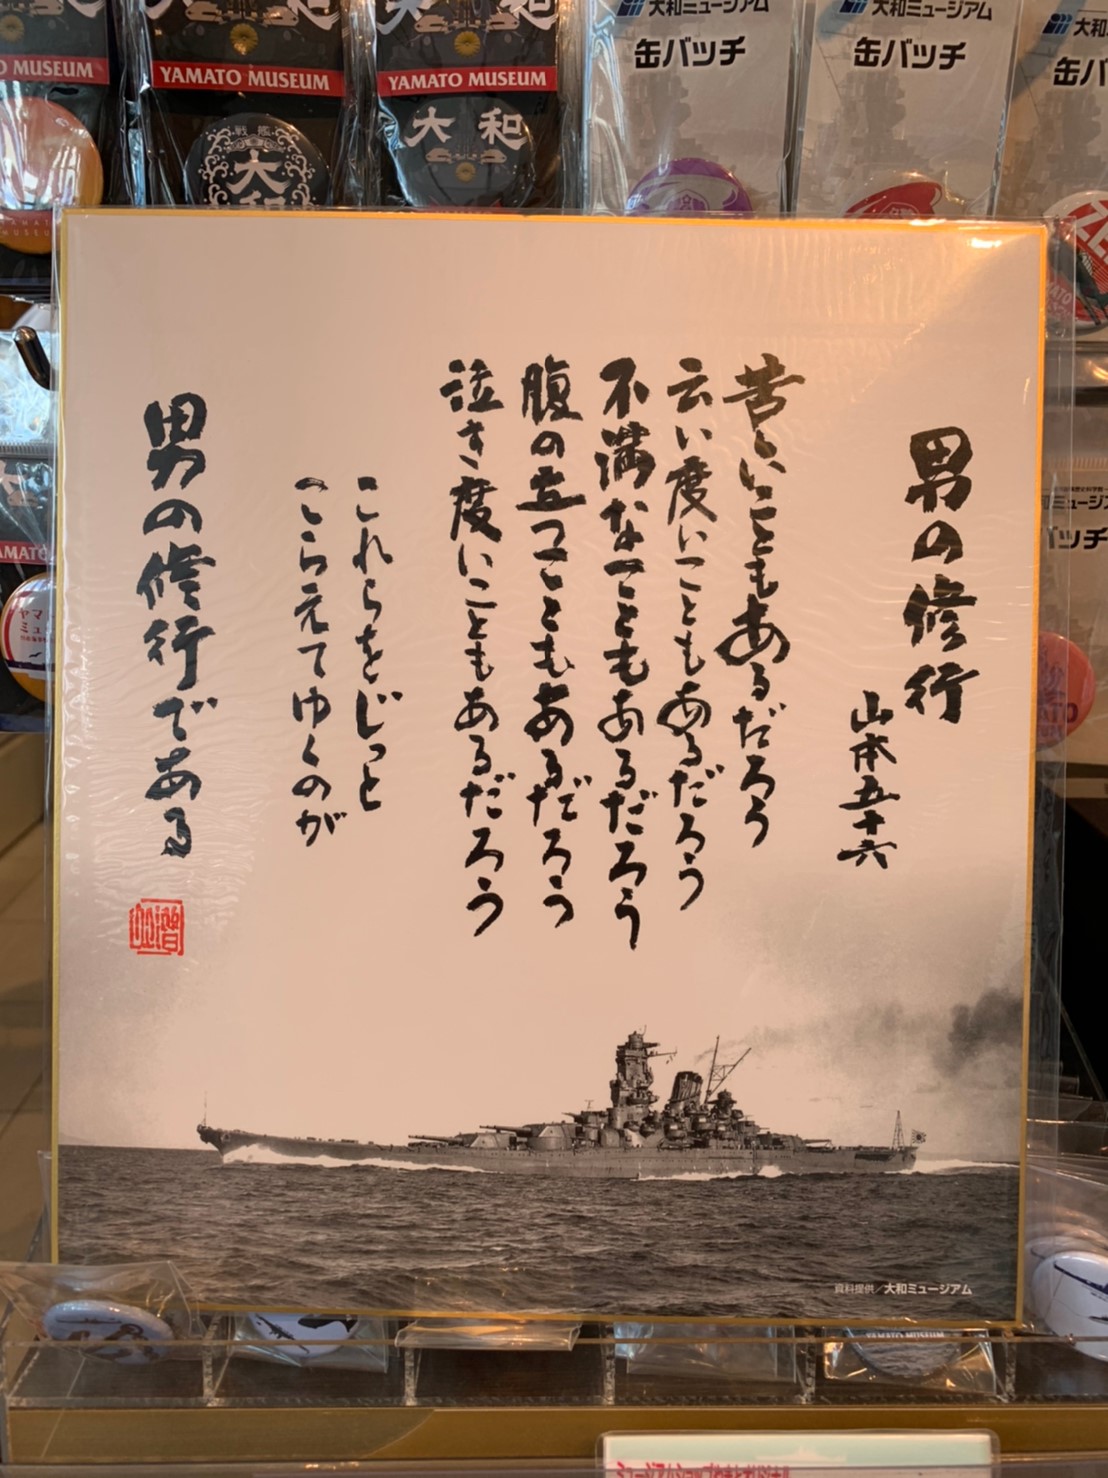 大和
YAMATO MUSEUM
YAMATO MUSEUM
大和ミュージアム
缶バッチ
大和ミュージアム
缶バッチ
戦艦
大和
大和
男の修行
山本五十六
苦しいこともあるだろう
云い度いこともあるだろう
不満なこともあるだろう
腹の立つこともあるだろう
泣き度いこともあるだろう
これらをじっと
こらえてゆくのが
男の修行である
資料提供／大和ミュージアム
YAMATO MUSEUM